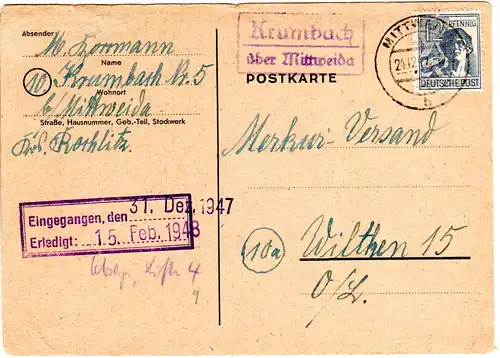 Absender:
M. Hormann
Name
10 Krumbach Nr. 5
Wohnort
b/Mittweida
Straße, Hausnummer, Geb.-Teil, Stockwerk
Krs. Rochlitz
Krumbach
über Mittweida
POSTKARTE
PFENNIG
DEUTSCHE POST
Merkur-Versand
10a Wilthen 15
O/L.
31. Dez. 1947
Eingegangen, den
Erledigt: 15. Feb. 1948
4
9